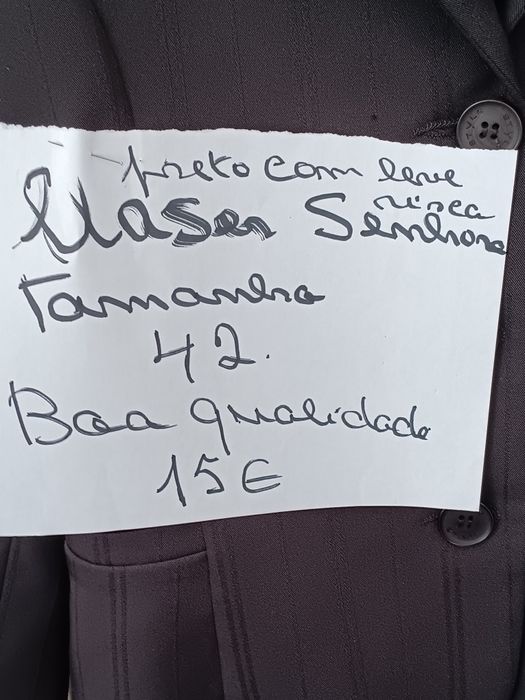 preto com leve
risca
Blaser Senhora
Tamanho
42.
Boa qualidade
15€
STYLE